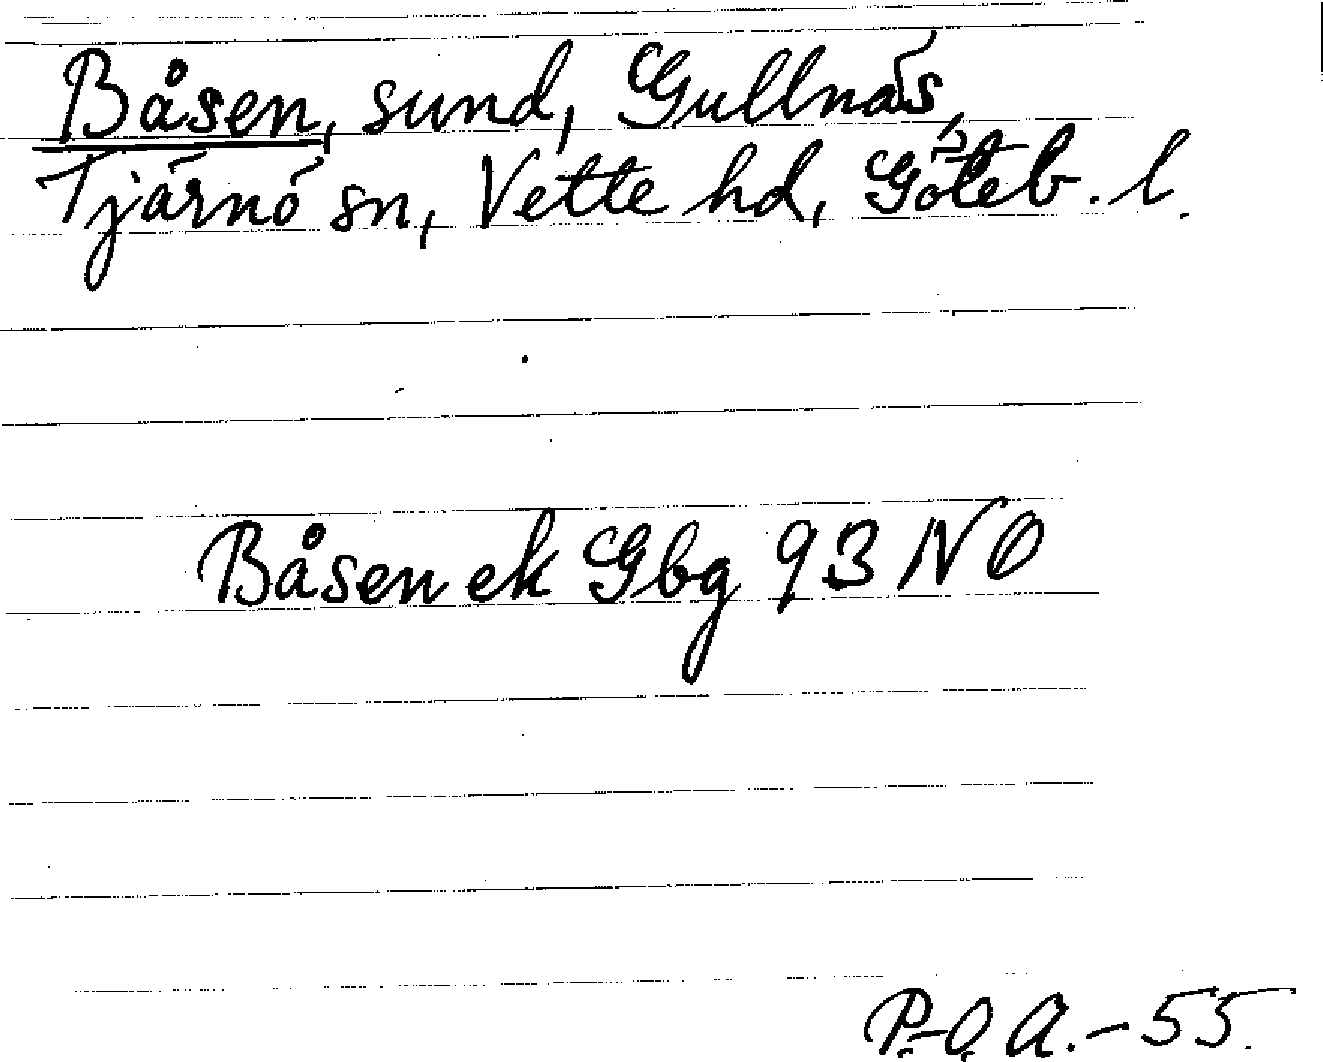 Båsen, sund, Gullnäs,
Tjärnö sn, Vette hd, Göteb. l.
Båsen ek Gbg 93 NO
P.-O. A. - 55.